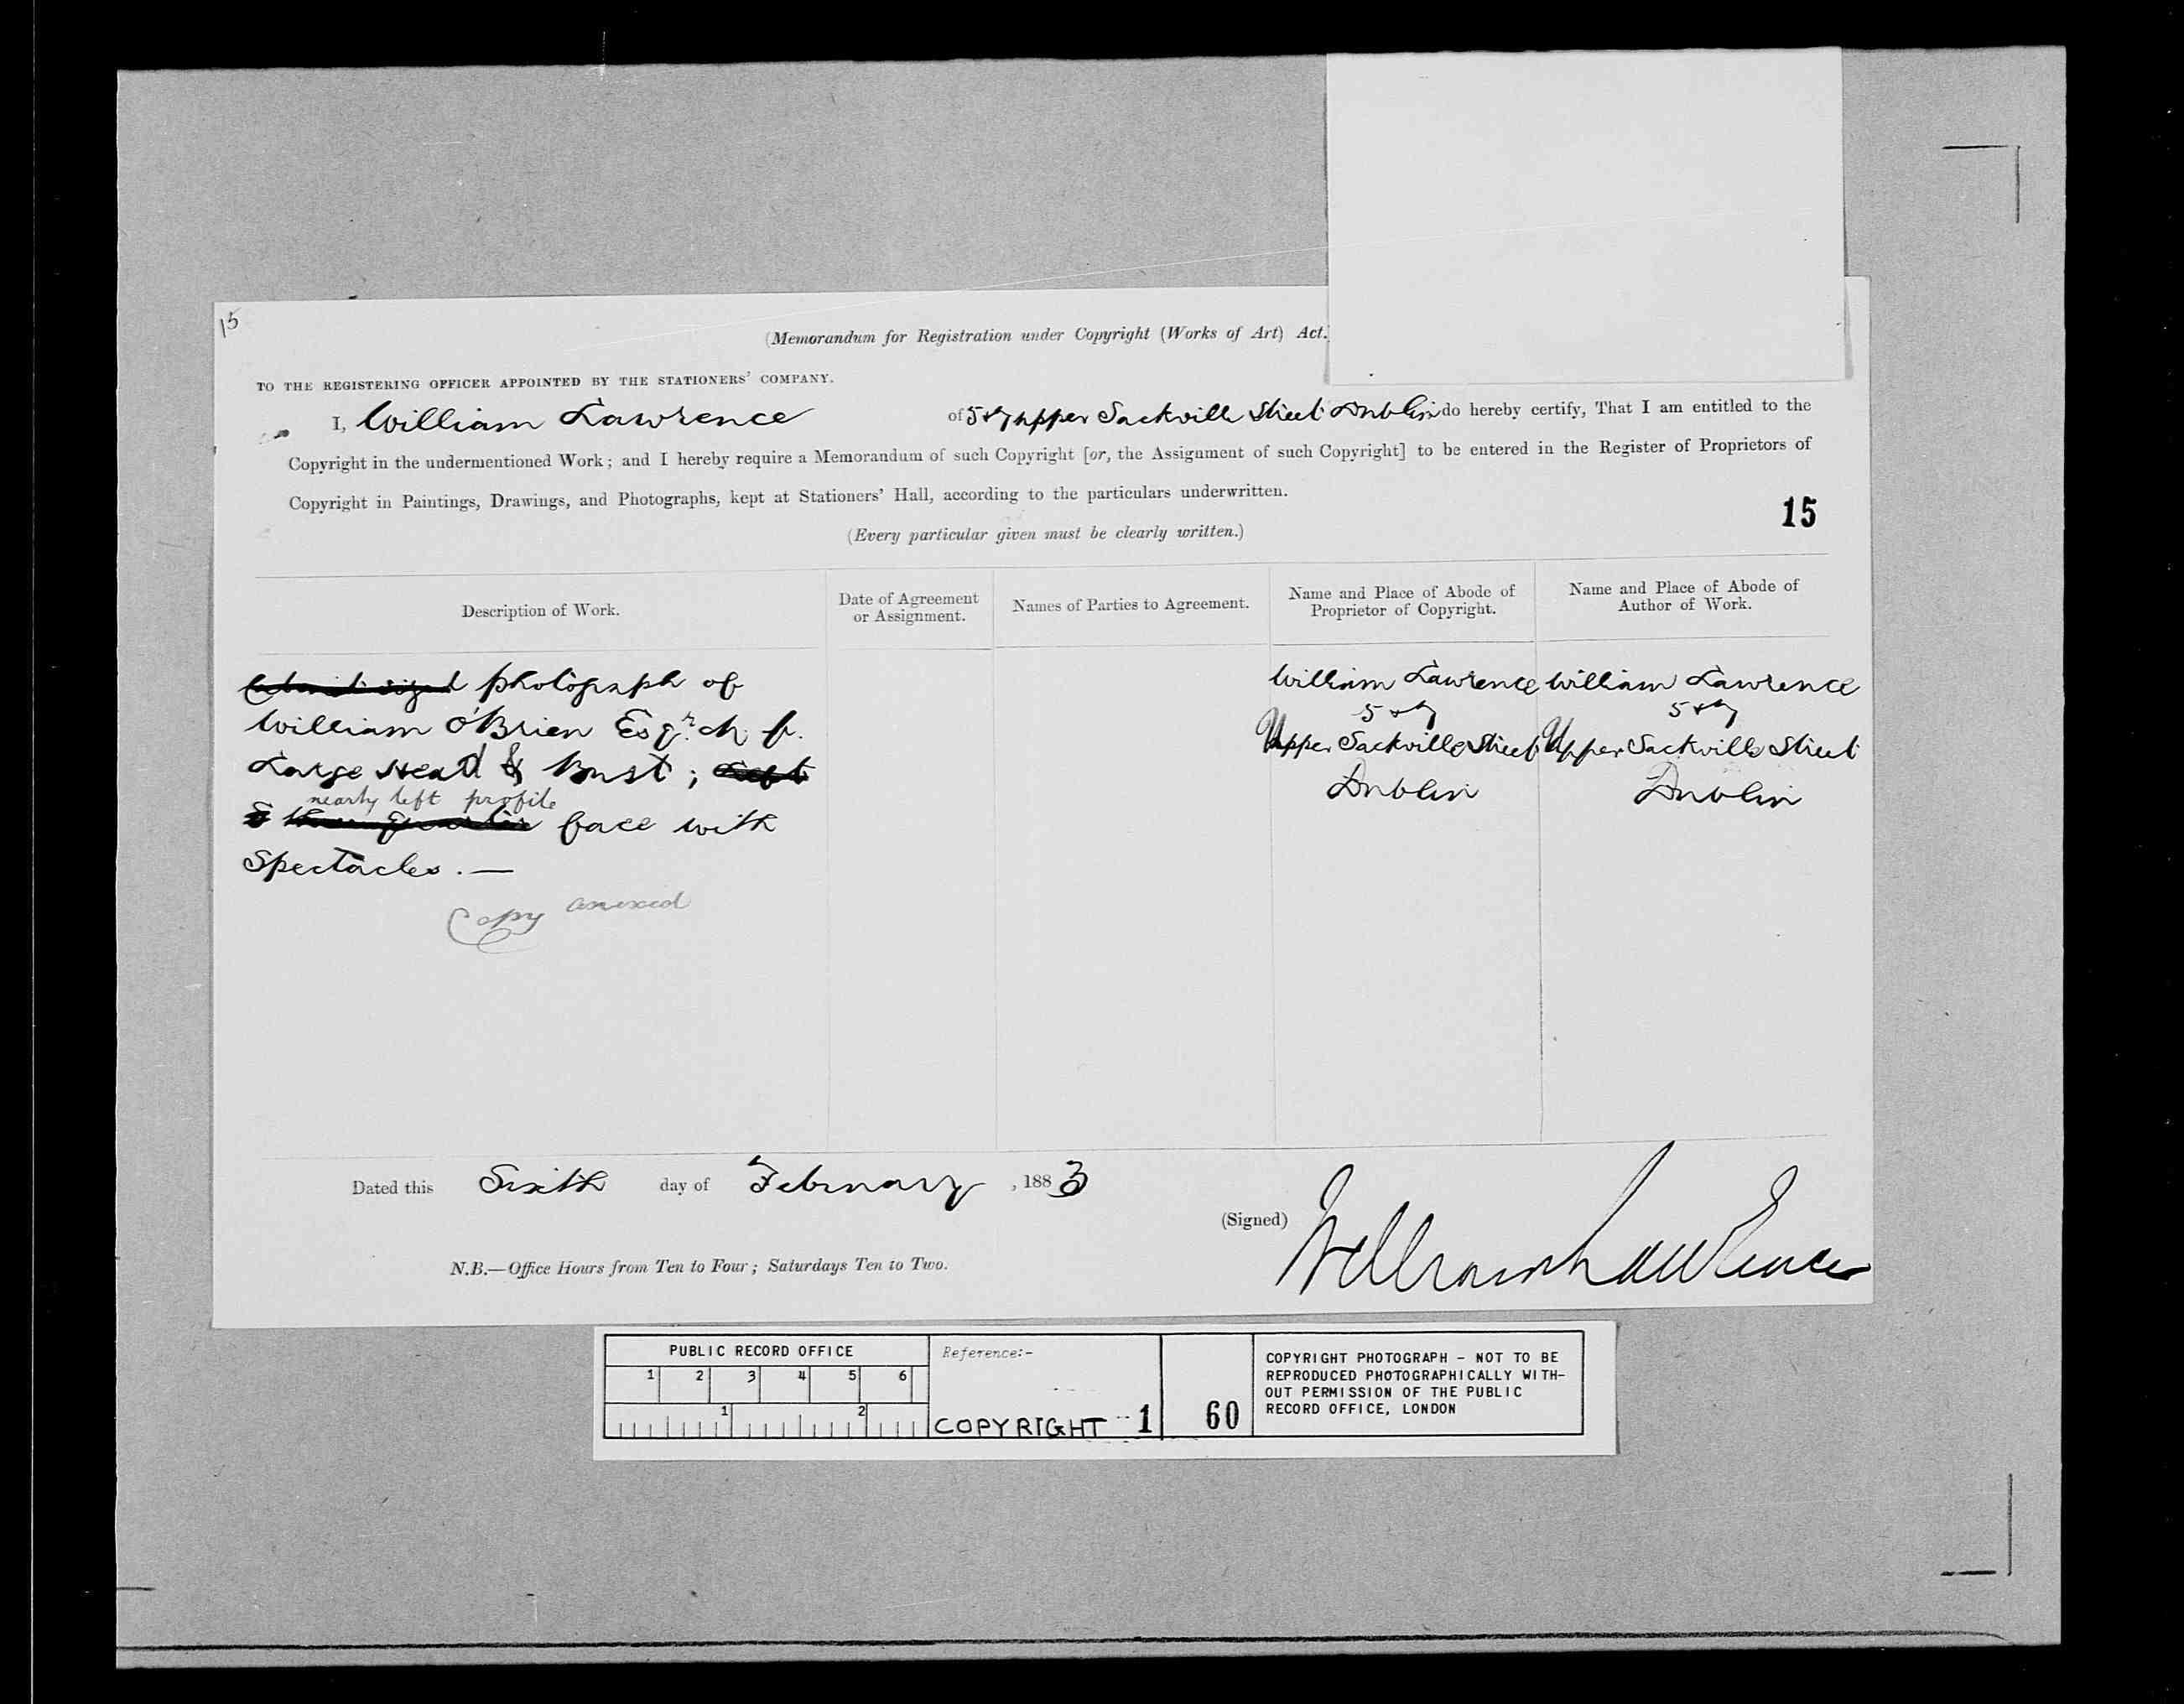 15
(Memorandum for Registration under Copyright (Works of Art) Act.
TO THE REGISTERING OFFICER APPOINTED BY THE STATIONERS' COMPANY.
I, William Lawrence of 5 & 7 upper Sackville Street Dublin do hereby certify, That I am entitled to the
Copyright in the undermentioned Work; and I hereby require a Memorandum of such Copyright [or, the Assignment of such Copyright] to be entered in the Register of Proprietors of
Copyright in Paintings, Drawings, and Photographs, kept at Stationers' Hall, according to the particulars underwritten.
15
(Every particular given must be clearly written.)
Description of Work.
Date of Agreement
or Assignment.
Names of Parties to Agreement.
Name and Place of Abode of
Proprietor of Copyright.
Name and Place of Abode of
Author of Work.
photograph of
William O'Brien Esqr. M. P.
Large Head & Bust;
nearly left profile
face with
Spectacles. —
Copy annexed
William Lawrence
5 & 7
Upper Sackville Street
Dublin
William Lawrence
5 & 7
Upper Sackville Street
Dublin
Dated this Sixth day of February, 1883
(Signed) William Lawrence
N.B.—Office Hours from Ten to Four; Saturdays Ten to Two.
PUBLIC RECORD OFFICE
1 2 3 4 5 6
1 2
Reference:-
COPYRIGHT 1
60
COPYRIGHT PHOTOGRAPH - NOT TO BE
REPRODUCED PHOTOGRAPHICALLY WITH-
OUT PERMISSION OF THE PUBLIC
RECORD OFFICE, LONDON